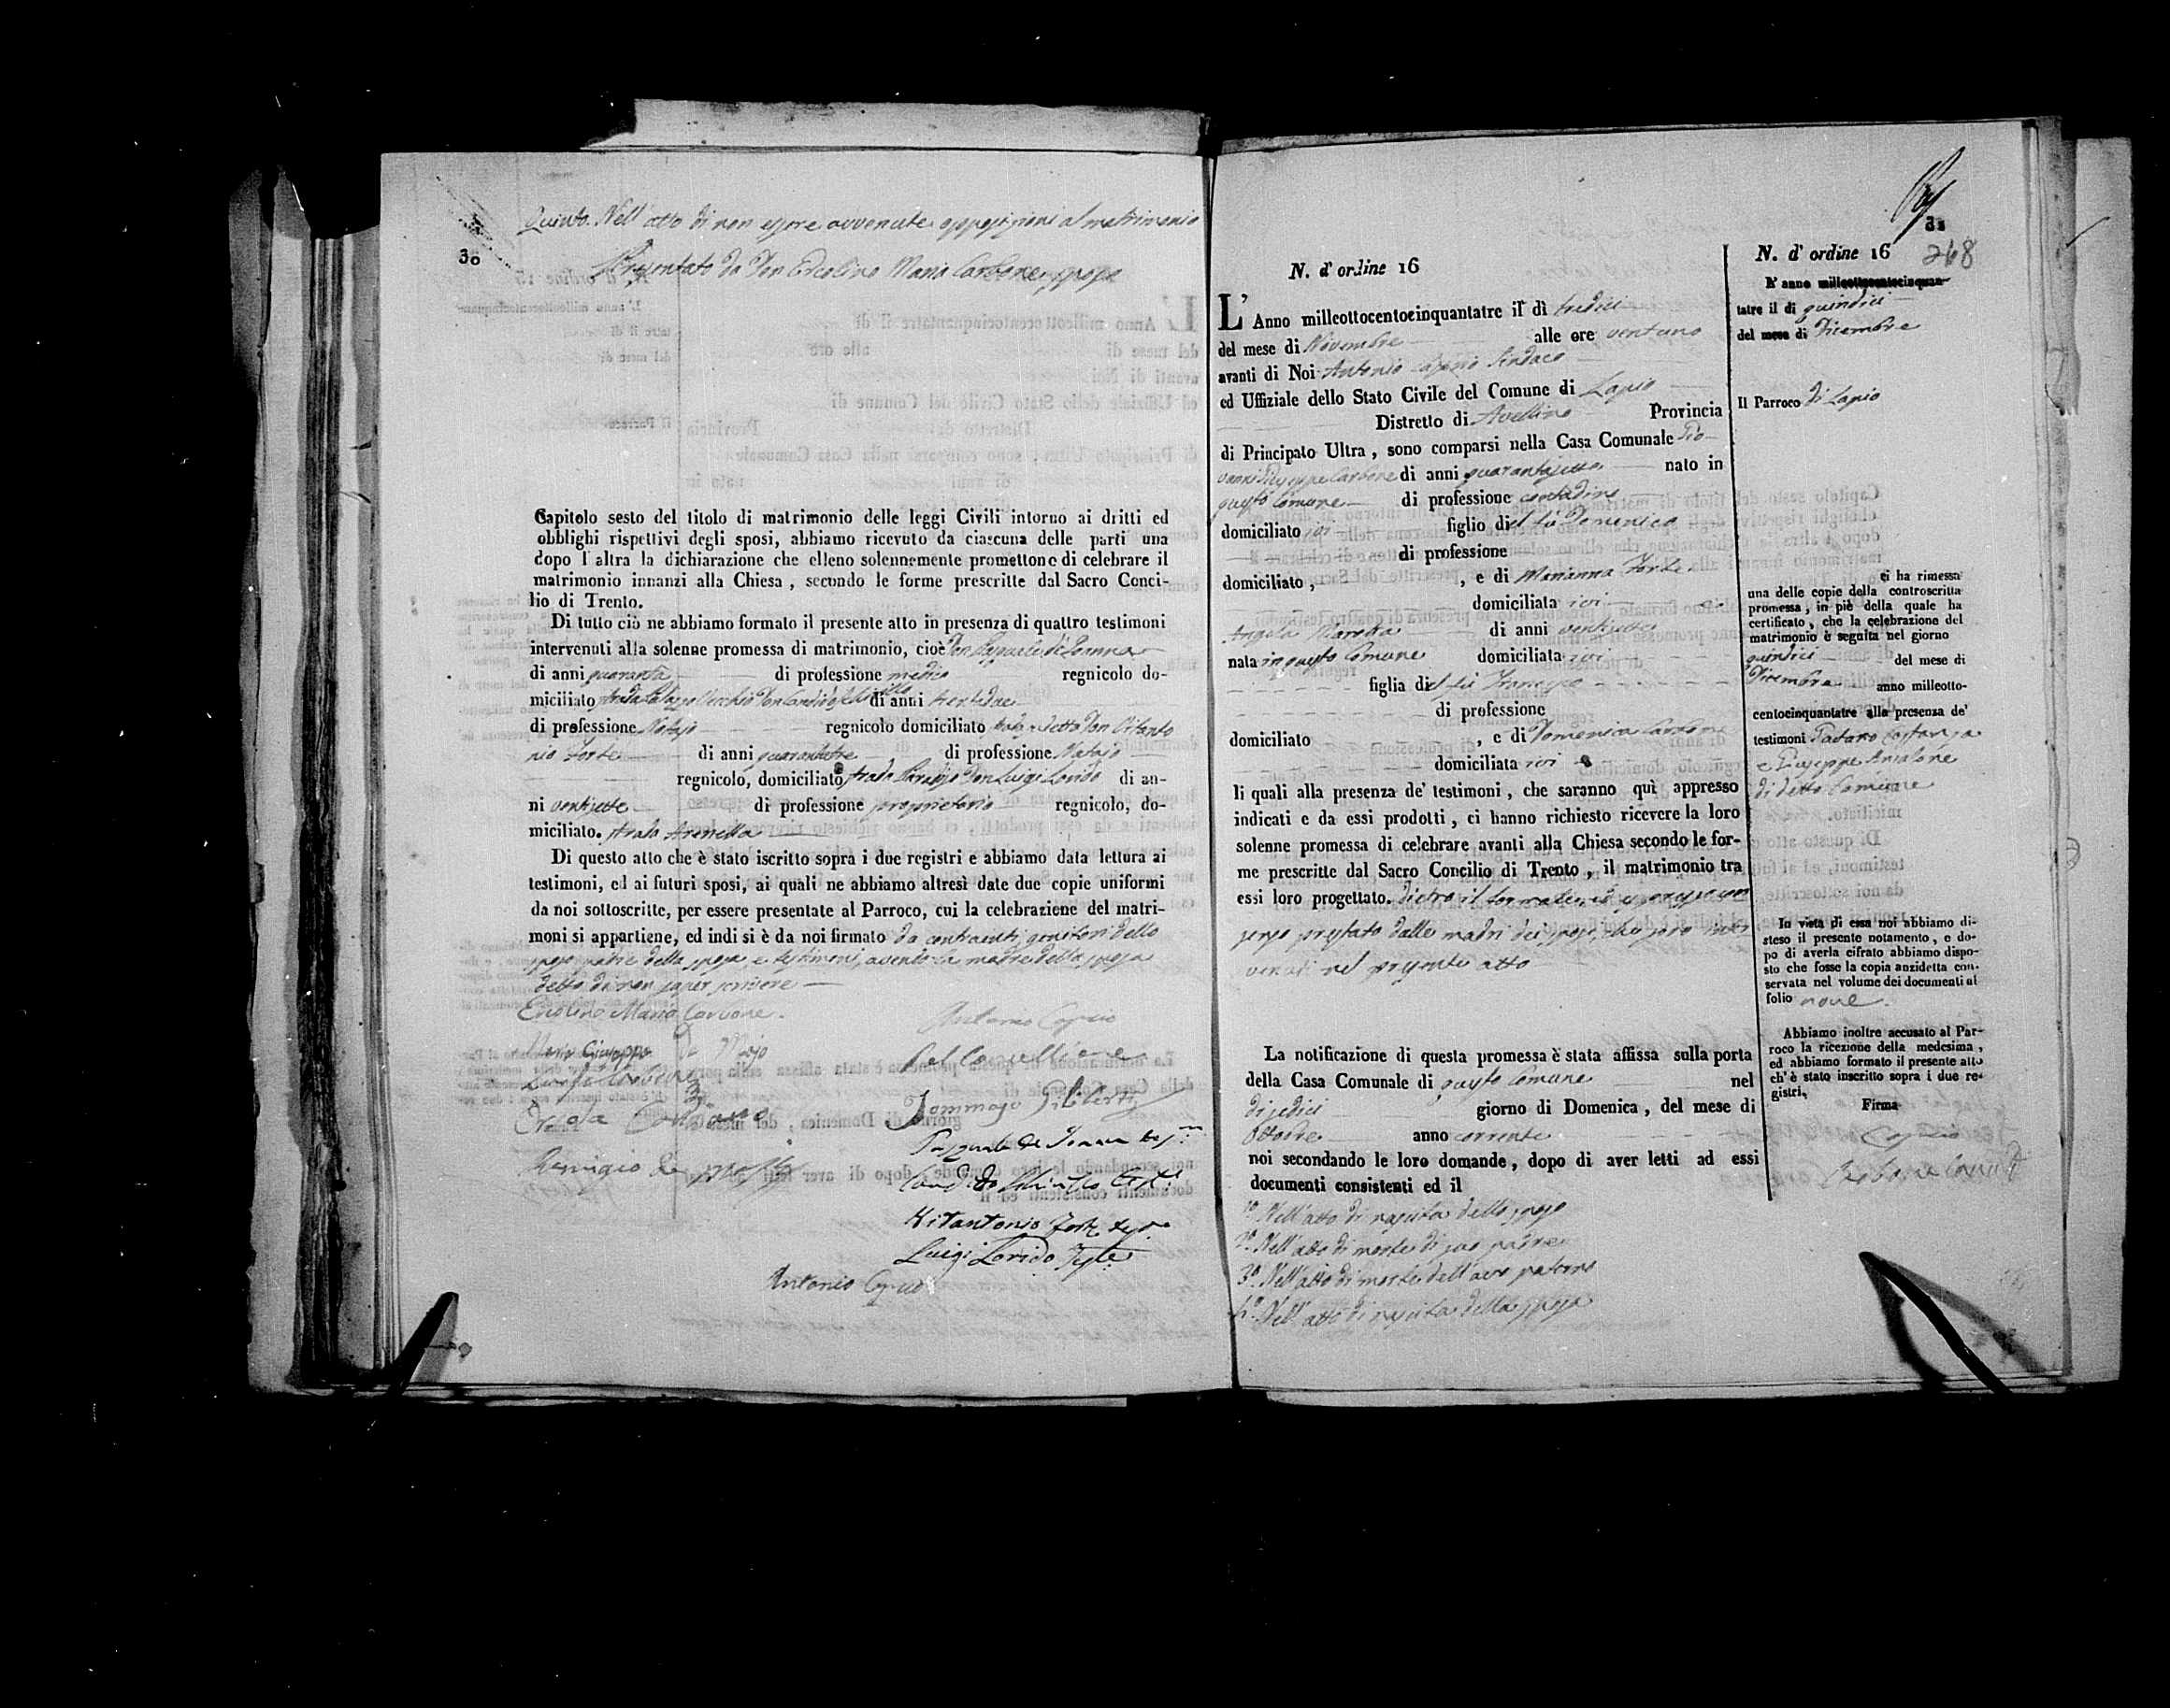 30
Quinto. Nell'atto di non essere avvenute opposizioni al matrimonio
Presentato da Don Ercolino Maria Carbone sposo
Capitolo sesto del titolo di matrimonio delle leggi Civili intorno ai dritti ed
obblighi rispettivi degli sposi, abbiamo ricevuto da ciascuna delle parti una
dopo l'altra la dichiarazione che elleno solennemente promettono di celebrare il
matrimonio innanzi alla Chiesa, secondo le forme prescritte dal Sacro Conci-
lio di Trento.
Di tutto ciò ne abbiamo formato il presente atto in presenza di quattro testimoni
intervenuti alla solenne promessa di matrimonio, cioè Don Pasquale de Joanna
di anni quaranta di professione medico regnicolo do-
miciliato strada Palazzo Vecchio Don Candido di anni trentadue
di professione Notajo regnicolo domiciliato detto Don Vitanto
nio Forte di anni quarantatre di professione Notajo
regnicolo, domiciliato strada Don Luigi Lorido di an-
ni ventisette di professione proprietario regnicolo, do-
miciliato. strada Arenella
Di questo atto che è stato iscritto sopra i due registri e abbiamo data lettura ai
testimoni, ed ai futuri sposi, ai quali ne abbiamo altresì date due copie uniformi
da noi sottoscritte, per essere presentate al Parroco, cui la celebrazione del matri-
moni si appartiene, ed indi si è da noi firmato da contraenti, genitori dello
sposo, padre della sposa, e testimoni, avendo la madre della sposa
detto di non saper scrivere
Ercolino Maria Carbone.
Antonio Caprio
Maria Giuseppa Di Majo
Tommaso Giliberti
Pasquale de Joanna
Candido
Vitantonio Forte
Luigi Lorido Teste
Antonio Caprio
31
268
N. d'ordine 16
L'Anno milleottocentocinquantatre il dì tredici
del mese di Novembre alle ore ventuno
avanti di Noi Antonio Caprio Sindaco
ed Uffiziale dello Stato Civile del Comune di Lapio
Distretto di Avellino Provincia
di Principato Ultra, sono comparsi nella Casa Comunale Gio-
vanni Giuseppe Carbone di anni quarantasette nato in
questo Comune di professione contadino
domiciliato ivi figlio del fù Domenico
di professione
domiciliato, , e di Marianna Forte
domiciliata ivi
Angela Marotta di anni ventisette
nata in questo Comune domiciliata ivi
figlia del fù Francesco
di professione
domiciliato , e di Domenica Carbone
domiciliata ivi
li quali alla presenza de' testimoni, che saranno quì appresso
indicati e da essi prodotti, ci hanno richiesto ricevere la loro
solenne promessa di celebrare avanti alla Chiesa secondo le for-
me prescritte dal Sacro Concilio di Trento, il matrimonio tra
essi loro progettato. dietro il formale, ed espresso con
senso prestato dalle madri dei sposi, che sono inter
venuti nel presente atto
La notificazione di questa promessa è stata affissa sulla porta
della Casa Comunale di questo Comune nel
di sedici giorno di Domenica, del mese di
Ottobre anno corrente
noi secondando le loro domande, dopo di aver letti ad essi
documenti consistenti ed il
1º. Nell'atto di nascita dello sposo
2º. Nell'atto di morte di suo padre
3º. Nell'atto di morte dell'avo paterno
4º. Nell'atto di nascita della sposa
N. d'ordine 16
L'anno milleottocentocinquan-
tatre il di quindici
del mese di Dicembre
Il Parroco di Lapio
ci ha rimessa
una delle copie della controscritta
promessa, in piè della quale ha
certificato, che la celebrazione del
matrimonio è seguita nel giorno
quindici del mese di
Dicembre anno milleotto-
centocinquantatre alla presenza de'
testimoni Gaetano Costanza
e Giuseppe Anzalone
di detto Comune
In vista di essa noi abbiamo di-
steso il presente notamento, e do-
po di averla cifrato abbiamo dispo-
sto che fosse la copia anzidetta con-
servata nel volume dei documenti al
folio nove.
Abbiamo inoltre accusato al Par-
roco la ricezione della medesima,
ed abbiamo formato il presente atto
ch'è stato inscritto sopra i due re-
gistri.
Firma
Caprio